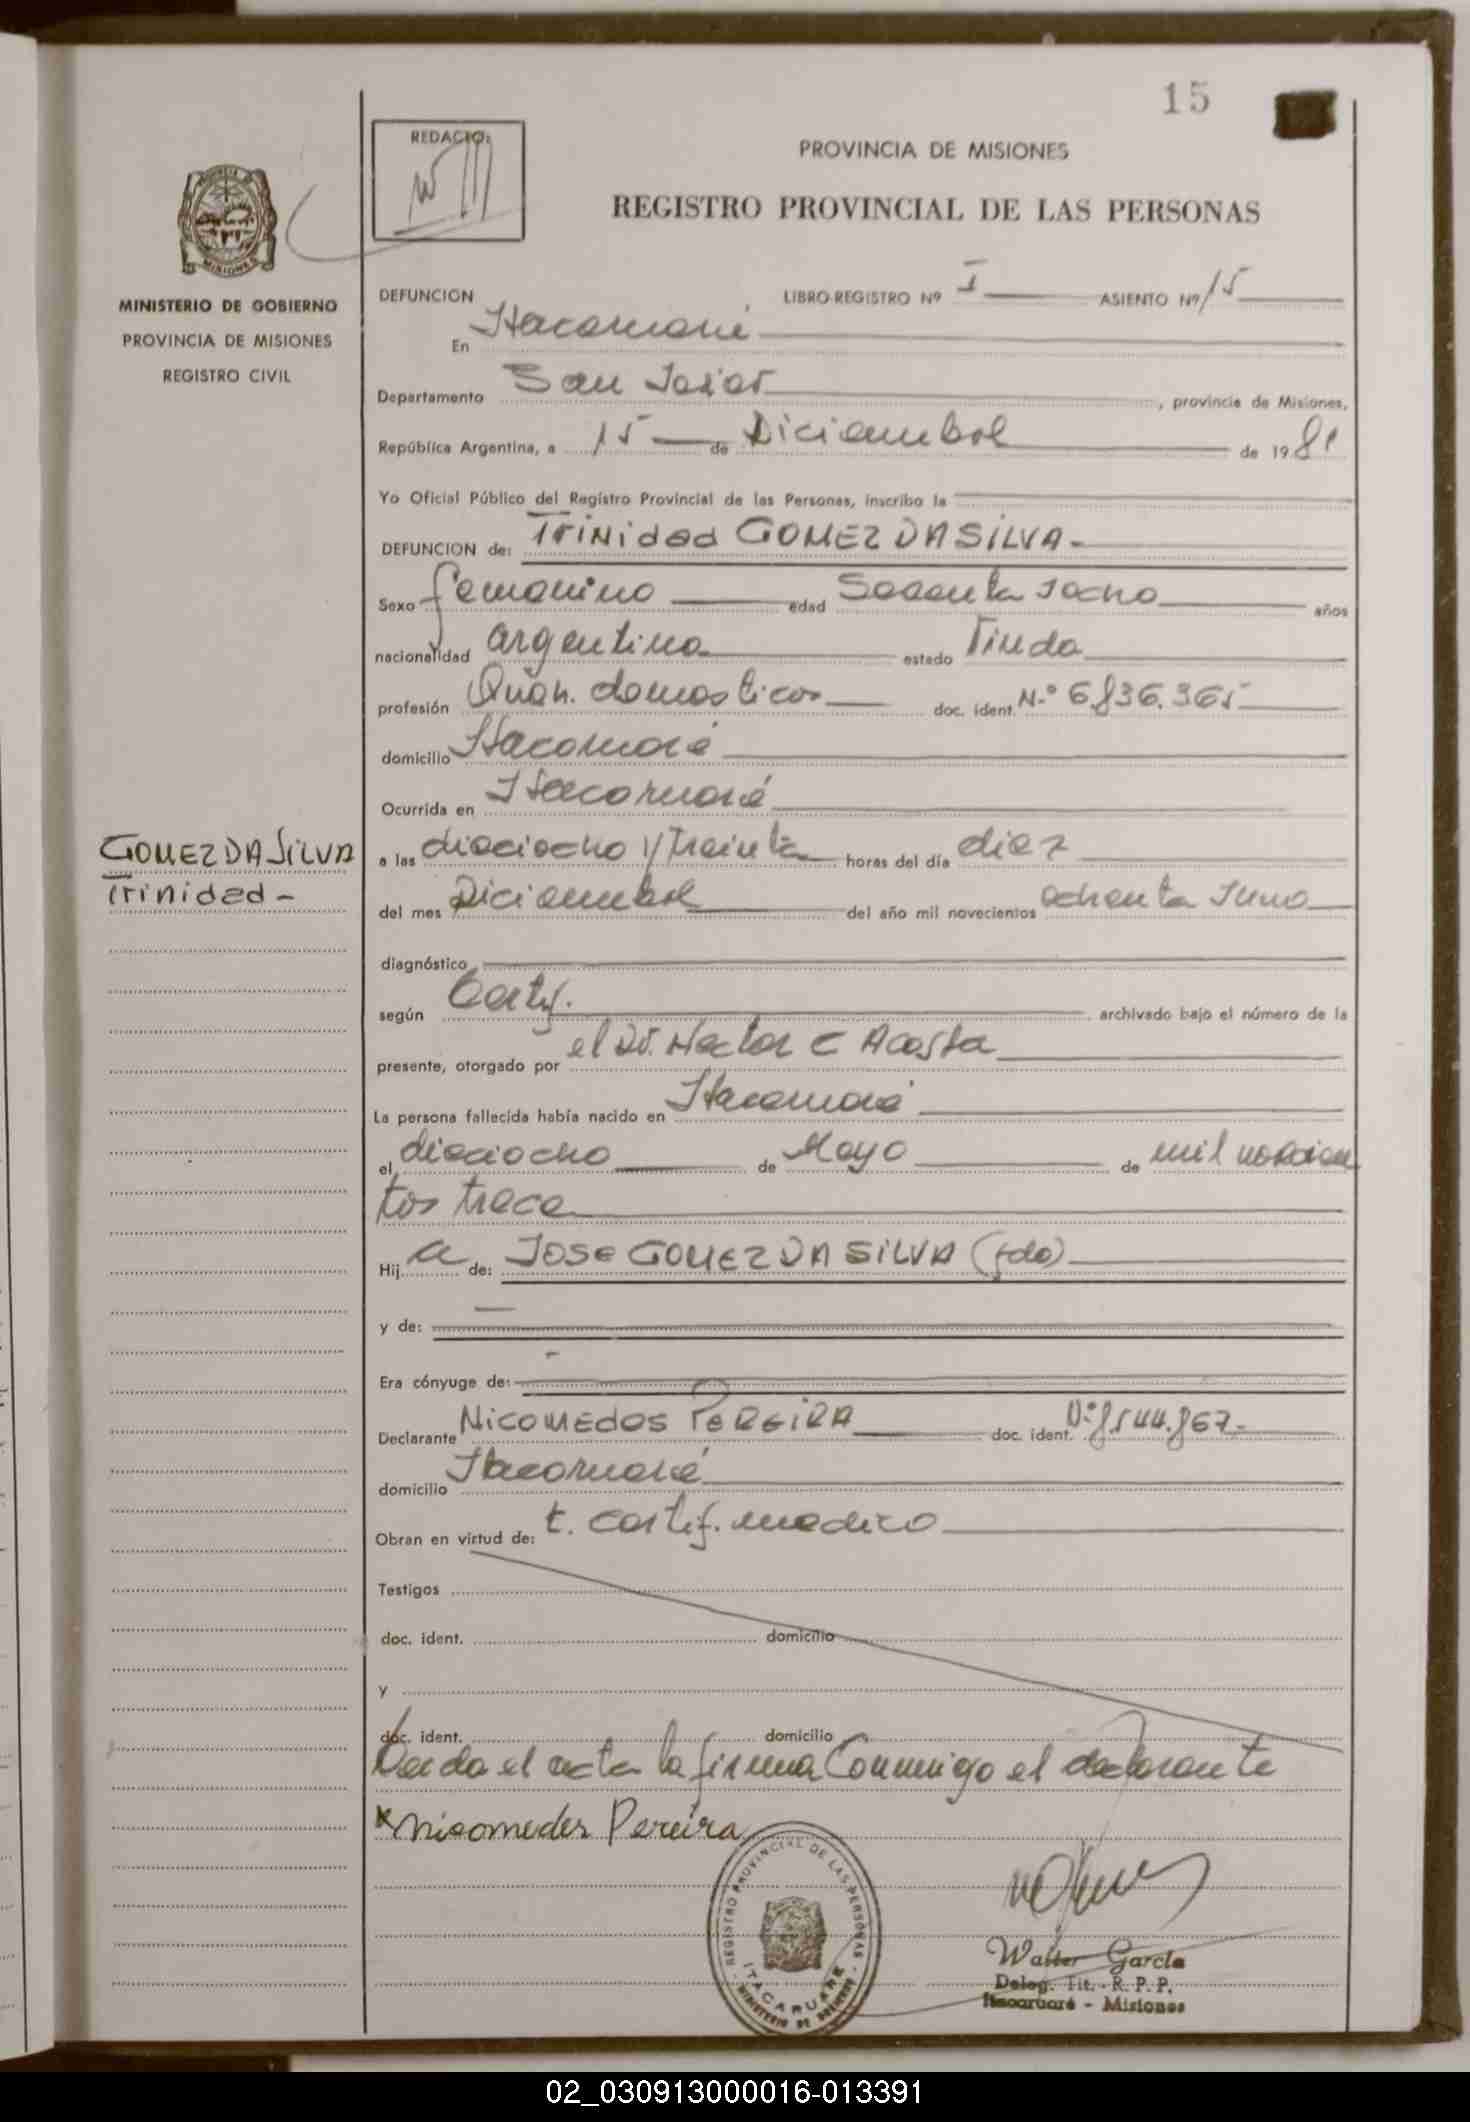 15
REDACTO:
PROVINCIA DE MISIONES
REGISTRO PROVINCIAL DE LAS PERSONAS
PROVINCIA DE
MISIONES
MINISTERIO DE GOBIERNO
PROVINCIA DE MISIONES
REGISTRO CIVIL
DEFUNCION LIBRO-REGISTRO Nº I ASIENTO Nº 15
En Itacaruaré
Departamento San Javier, provincia de Misiones,
República Argentina, a 15 de Diciembre de 1981
Yo Oficial Público del Registro Provincial de las Personas, inscribo la
DEFUNCION de: Trinidad GOMEZ DA SILVA-
Sexo femenino edad Sesenta y ocho años
nacionalidad argentina estado Viuda
profesión Queh. domesticos doc. ident. N.º 6.836.365
domicilio Itacaruaré
Ocurrida en Itacaruaré
GOMEZ DA SILVA
Trinidad -
a las dieciocho y treinta horas del día diez
del mes Diciembre del año mil novecientos ochenta y uno
diagnóstico
según Certif. archivado bajo el número de la
presente, otorgado por el Dr. Hector C Acosta
La persona fallecida había nacido en Itacaruaré
el dieciocho de Mayo de mil novecien
tos trece
Hij a de: JOSE GOMEZ DA SILVA (fdo)
y de: —
Era cónyuge de: -
Declarante NICOMEDES PEREIRA doc. ident. Nº 8.544.867-
domicilio Itacaruaré
Obran en virtud de: t. certif. medico
Testigos
doc. ident. domicilio
y
doc. ident. domicilio
Leida el acta la firma Conmigo el declarante
x Nicomedes Pereira
REGISTRO PROVINCIAL DE LAS PERSONAS
ITACARUARE
MINISTERIO DE GOBIERNO
Walter Garcia
Deleg. Tit. - R. P. P.
Itacaruaré - Misiones
02_030913000016-013391